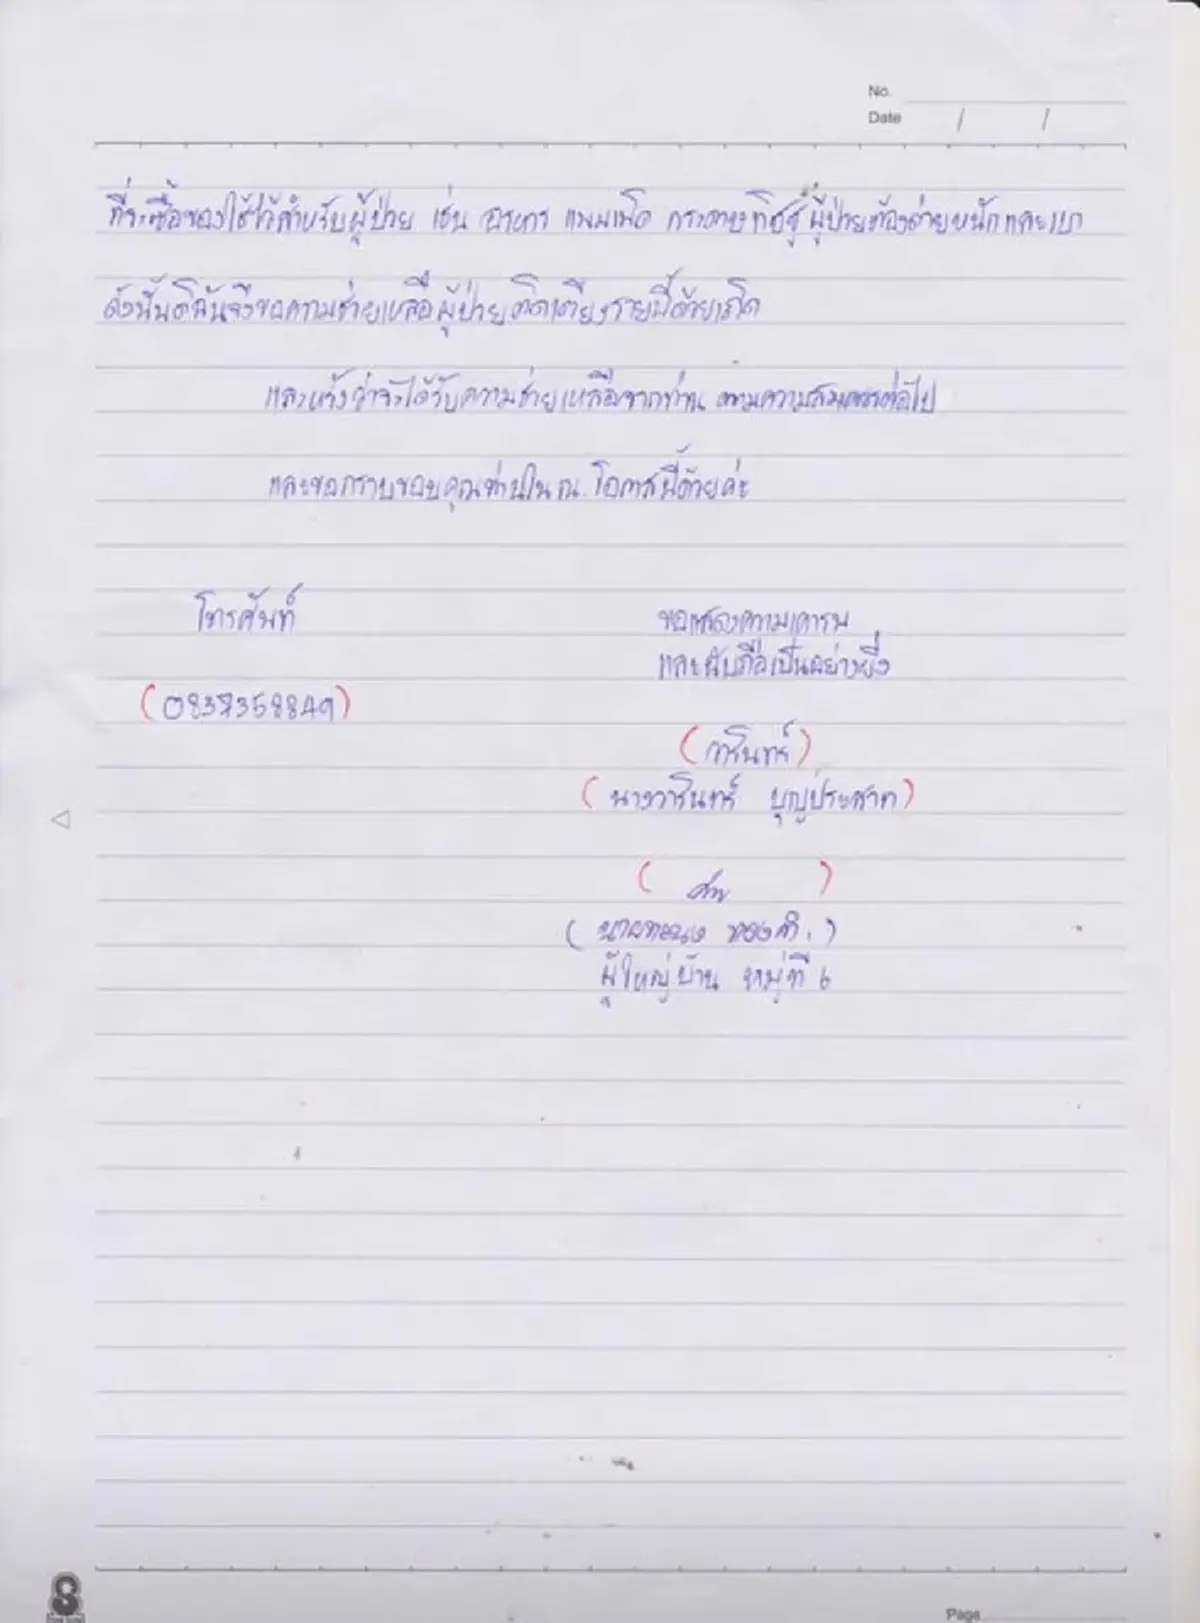 No.
Date / /
ที่จะซื้อของใช้ไว้สำหรับผู้ป่วย เช่น อาหาร แพมเพิด กระดาษทิชชู่ ผู้ป่วยต้องถ่ายหนักและเบา
ดังนั้นดิฉันจึงขอความช่วยเหลือผู้ป่วยติดเตียงรายนี้ด้วยเถิด
และหวังว่าจะได้รับความช่วยเหลือจากท่าน ตามความสมควรต่อไป
และขอกราบขอบคุณท่านใน ณ. โอกาสนี้ด้วยค่ะ
โทรศัพท์
ขอแสดงความเคารพ
และนับถือเป็นอย่างยิ่ง
(0837358849)
(วารินทร์)
(นางวารินทร์ บุญประสาท)
(นาย ทองคำ.)
ผู้ใหญ่บ้าน หมู่ที่ 6
8
Page